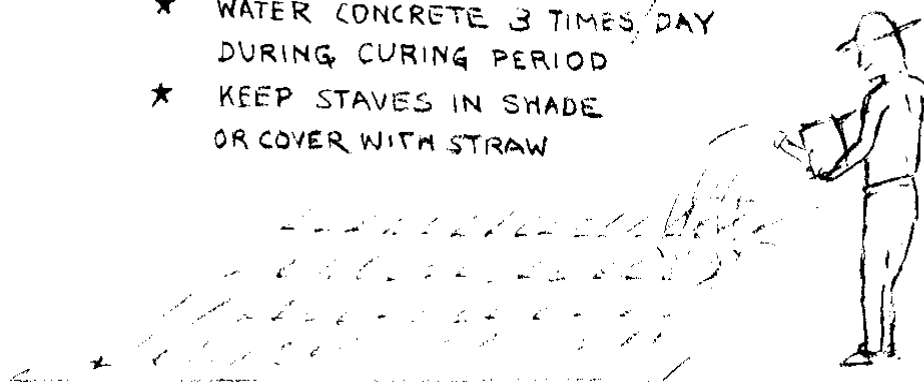 ★ WATER CONCRETE 3 TIMES/DAY
DURING CURING PERIOD
★ KEEP STAVES IN SHADE
OR COVER WITH STRAW